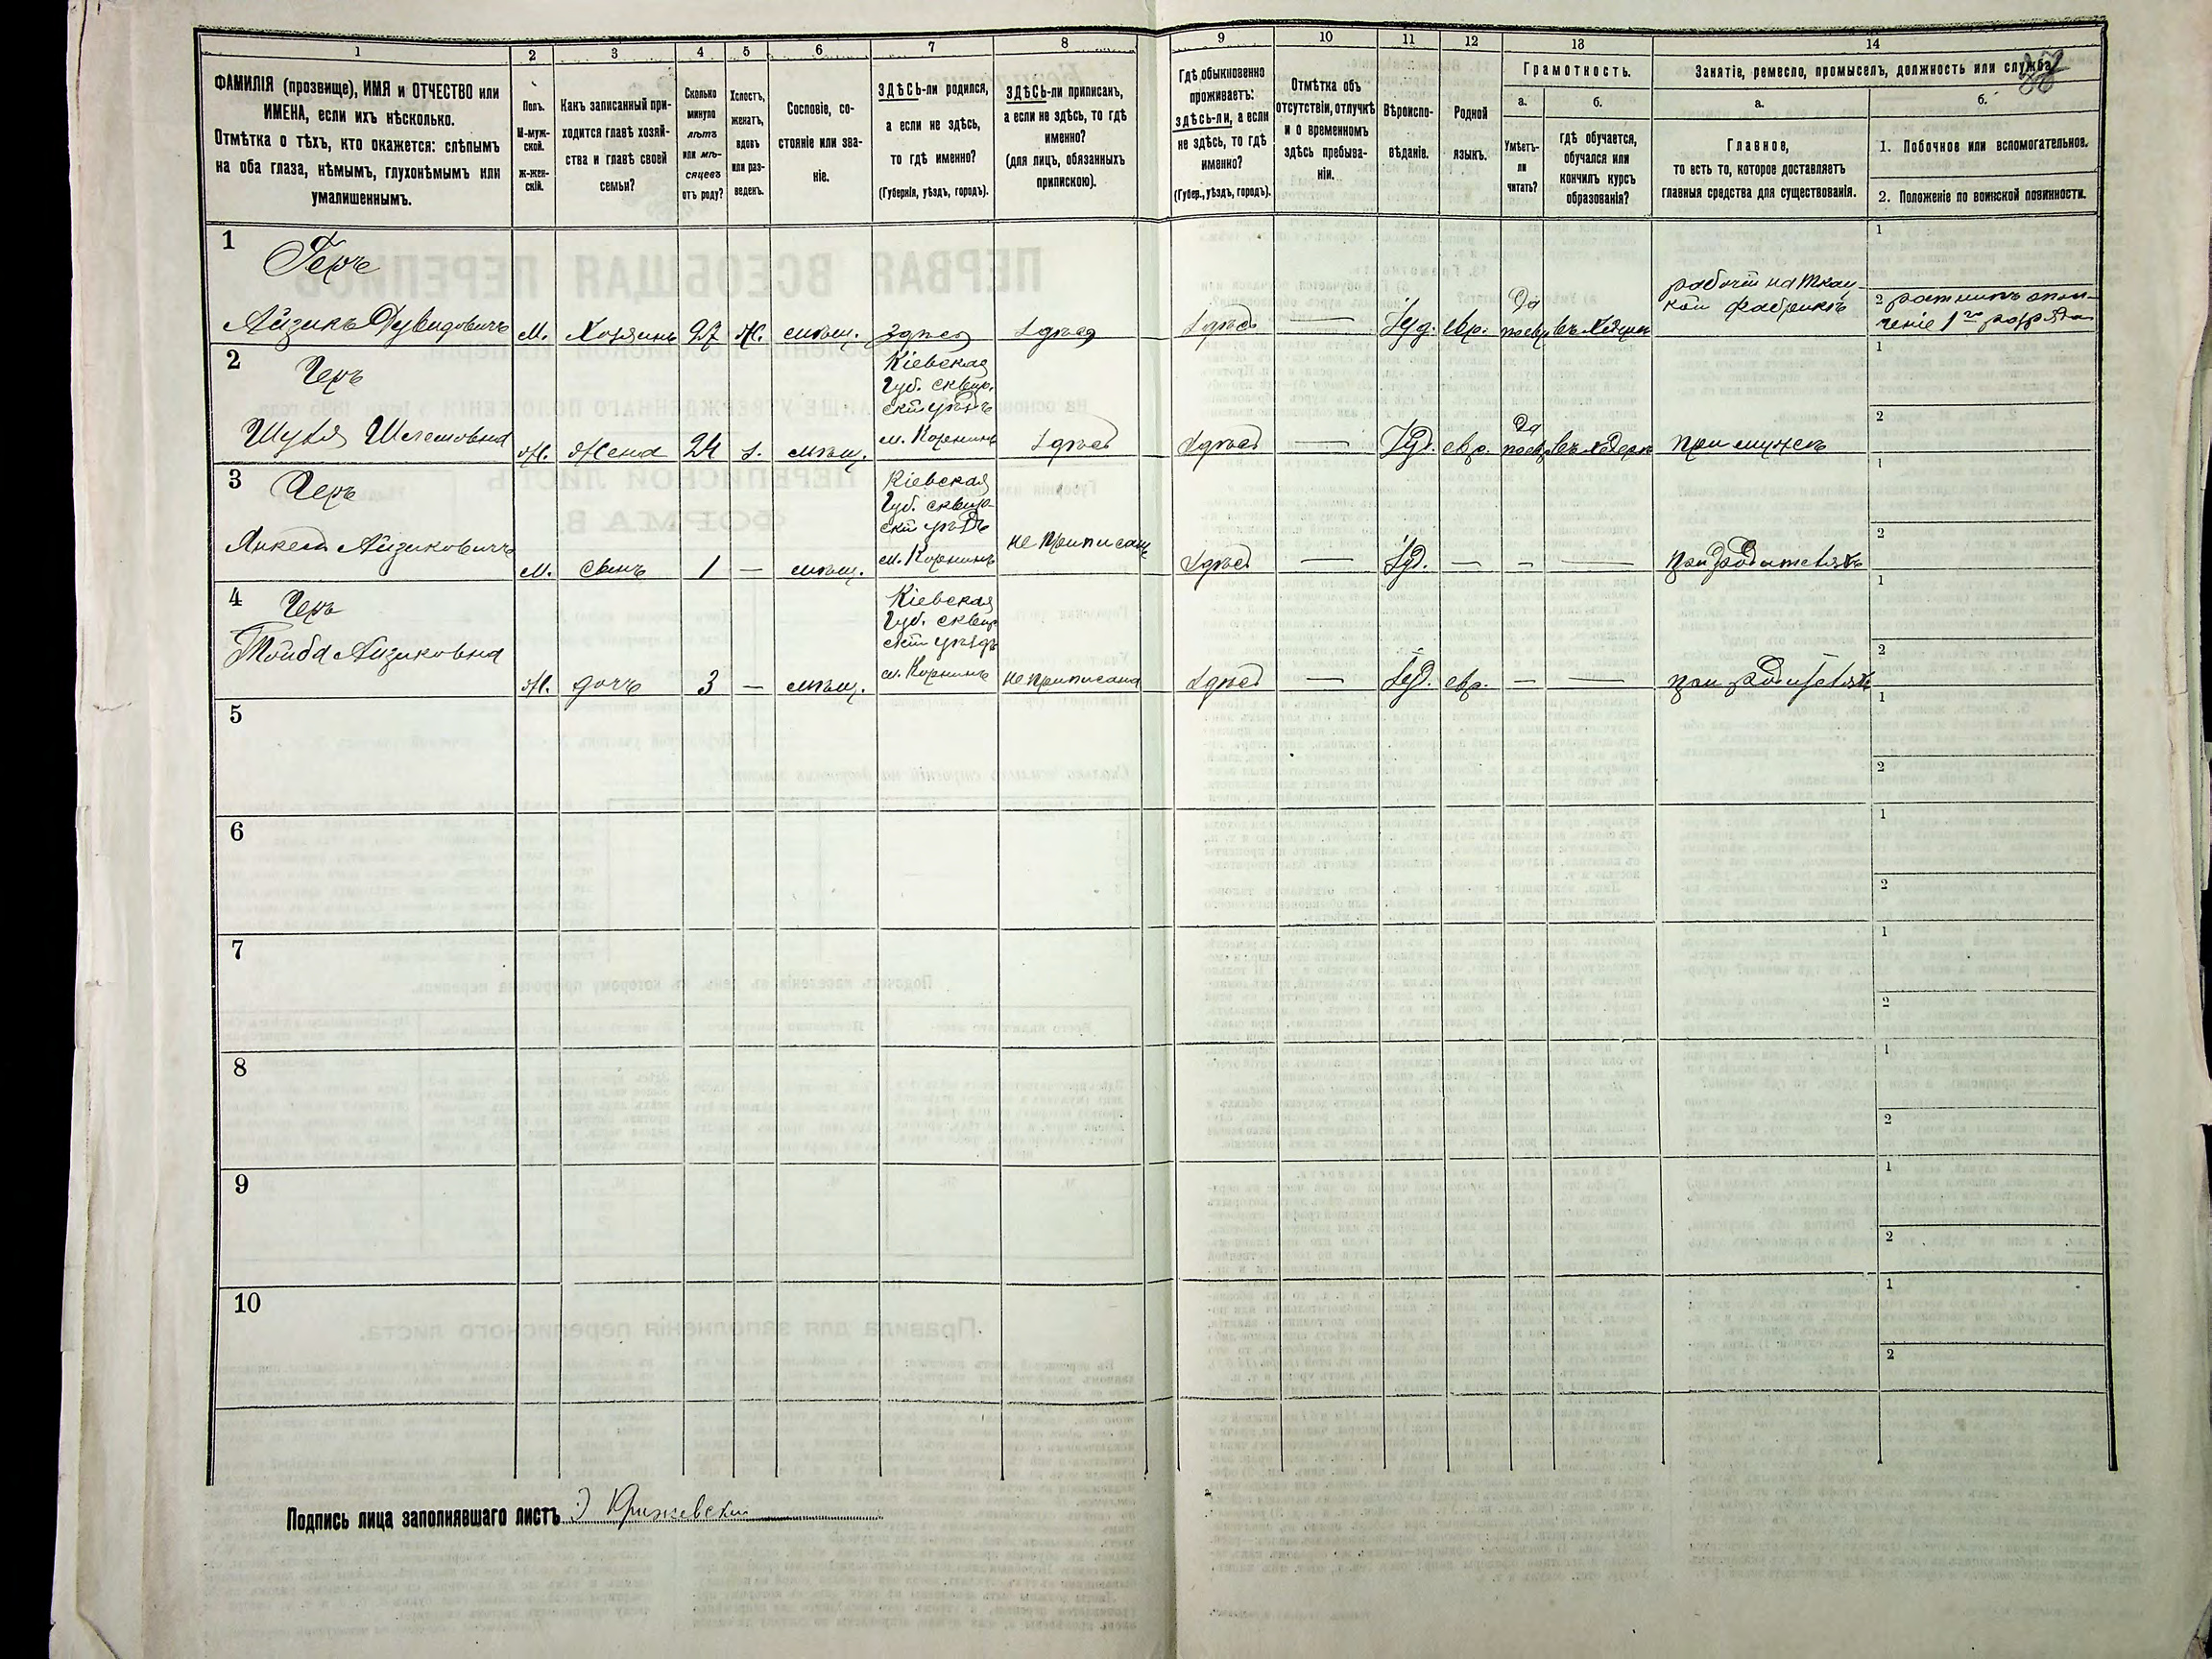 1 2 3 4 5 6 7 8 9 10 11 12 13 14
ФАМИЛІЯ (прозвище), ИМЯ и ОТЧЕСТВО или
ИМЕНА, если ихъ нѣсколько.
Отмѣтка о тѣхъ, кто окажется: слѣпымъ
на оба глаза, нѣмымъ, глухонѣмымъ или
умалишеннымъ.
Полъ.
М-муж-
ской.
Ж-жен-
скій.
Какъ записанный при-
ходится главѣ хозяй-
ства и главѣ своей
семьи?
Сколько
минуло
лѣтъ
или мѣ-
сяцевъ
отъ роду?
Холостъ,
женатъ,
вдовъ
или раз-
веденъ.
Сословіе, со-
стояніе или зва-
ніе.
ЗДѢСЬ-ли родился,
а если не здѣсь,
то гдѣ именно?
(Губернія, уѣздъ, городъ).
ЗДѢСЬ-ли приписанъ,
а если не здѣсь, то гдѣ
именно?
(для лицъ, обязанныхъ
припискою).
Гдѣ обыкновенно
проживаетъ:
здѣсь-ли, а если
не здѣсь, то гдѣ
именно?
(Губер., уѣздъ, городъ).
Отмѣтка объ
отсутствіи, отлучкѣ
и о временномъ
здѣсь пребыва-
ніи.
Вѣроиспо-
вѣданіе.
Родной
языкъ.
Грамотность.
а.
Умѣетъ-
ли
читать?
б.
гдѣ обучается,
обучался или
кончилъ курсъ
образованія?
Занятіе, ремесло, промыселъ, должность или служба.
а.
Главное,
то есть то, которое доставляетъ
главныя средства для существованія.
б.
1. Побочное или вспомогательное.
2. Положеніе по воинской повинности.
1
Геръ
Айзикъ Дувидовичъ
М.
Хозяинъ
27
Ж.
мѣщ.
Здѣсь
Здѣсь
Здѣсь
—
Іуд.
евр.
Да
въ хедерѣ
рабочій на ткац-
кой фабрикѣ
1
2 ратникъ опол-
ченіе 1го разряда
2
Геръ
Шулимовна
Ж.
Жена
24
з.
мѣщ.
Кіевская
Губ. сквир-
скій уѣздъ
м. Корнинъ
Здѣсь
Здѣсь
—
Іуд.
евр.
Да
въ хедерѣ
при мужѣ
1
2
3
Геръ
Янкель Айзиковичъ
м.
сынъ
1
—
мѣщ.
Кіевская
Губ. сквир-
скій уѣздъ
м. Корнинъ
не приписанъ
Здѣсь
—
Іуд.
—
—
—
при родителяхъ
1
2
4
Геръ
Тойба Айзиковна
Ж.
дочь
3
—
мѣщ.
Кіевская
Губ. сквир
скій уѣздъ
м. Корнинъ
не приписана
Здѣсь
—
Іуд.
евр.
—
—
при родителяхъ
1
2
5
1
2
6
1
2
7
1
2
8
1
2
9
1
2
10
1
2
Подпись лица заполнявшаго листъ